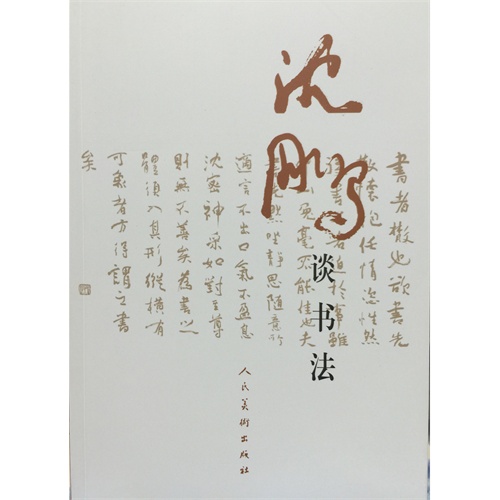 沈鹏
谈书法
書者散也欲書先
散懷抱任情恣性然
書 若迫於事雖
山兔毫不能佳也夫
默坐靜思隨意所
適言不出口氣不盈息
沈密神采如對至尊
則無不善矣為書之
體須入其形縱橫有
可象者方得謂之書
矣
人民美術出版社